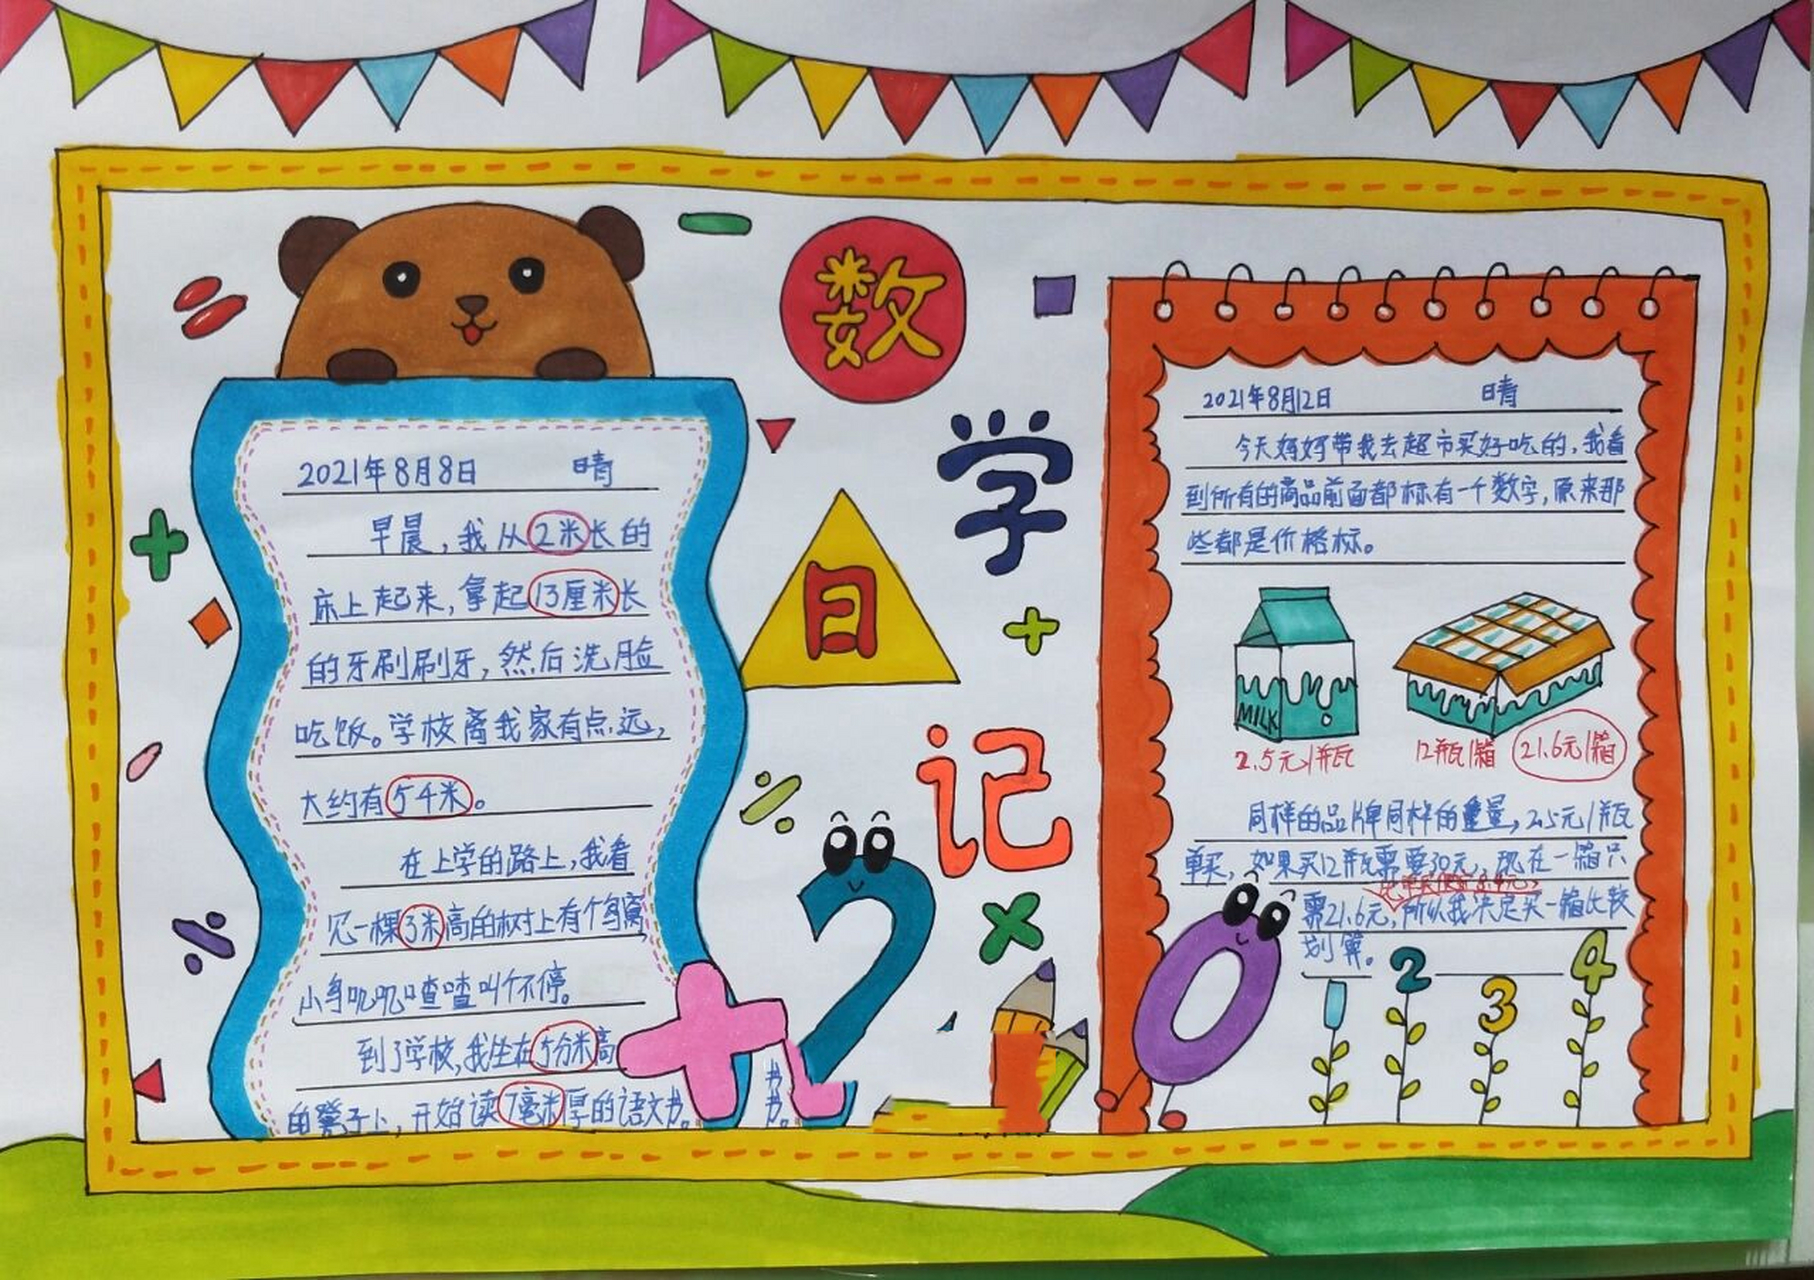 数学日记
2021年8月8日 晴
早晨,我从2米长的
床上起来,拿起13厘米长
的牙刷刷牙,然后洗脸
吃饭。学校离我家有点远,
大约有5千米。
在上学的路上,我看
见一棵3米高的树上有个鸟窝,
小鸟叽叽喳喳叫个不停。
到了学校,我坐在5分米高
的凳子上,开始读7毫米厚的语文书。
书
书。
2021年8月12日 晴
今天妈妈带我去超市买好吃的,我看
到所有的商品前面都标有一个数字,原来那
些都是价格标。
MILK
2.5元/瓶
12瓶/箱 21.6元/箱
同样的品牌同样的重量,2.5元/瓶
单买,如果买12瓶需要30元,现在一箱只
需21.6元,所以我决定买一箱比较
划算。
+2
0
1 2 3 4